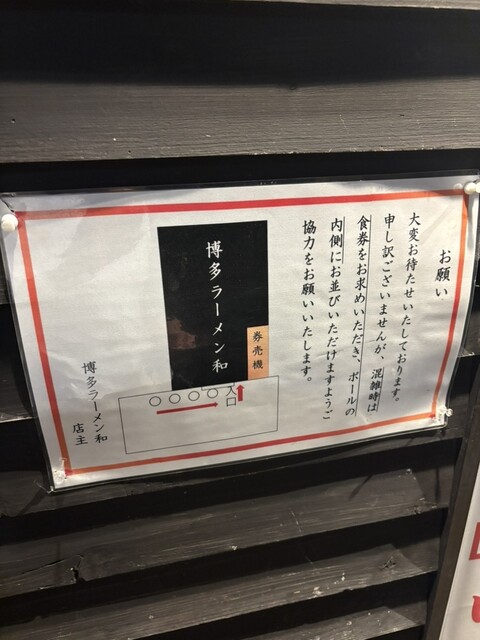 お願い
大変お待たせいたしております。
申し訳ございませんが、混雑時は
食券をお求めいただき、ポールの
内側にお並びいただけますようご
協力をお願いいたします。
博多ラーメン和
券売機
入口
博多ラーメン和
店主